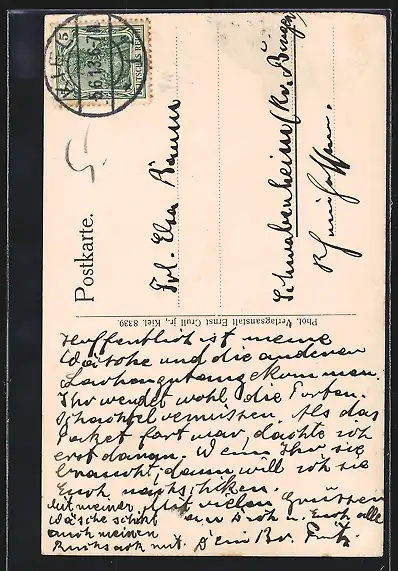 Postkarte.
Frl. Elsa Baum
Schwabenheim (Kr. Bingen)
Rheinhessen.
Phot. Verlagsanstalt Ernst Crull jr., Kiel. 8339.
KIEL
5.6.13.
DEUTSCHES REICH
Hoffentlich ist meine
Wäsche und die anderen
Sachen gut angekommen.
Ihr werdet wohl die
Schachtel vermissen. Als das
Paket fort war, dachte ich
erst daran. Wenn Ihr sie
braucht, dann will ich sie
Euch nachschicken.
Mit vielen Grüssen
an Dich u. Euch alle
Dein Br. Fritz.
Mit meiner
Wäsche schickt
auch meinen
Rucksack mit.